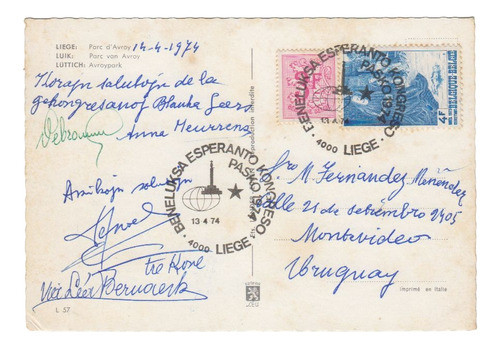 LIEGE: Parc d'Avroy
LUIK: Parc van Avroy
LÜTTICH: Avroypark
14-4-1974
Korajn salutojn de la
gekongresanoj Blanka Geers
Anna Meurrens
Amikajn salutojn
Tre Kore
L 57
BENELUKSA ESPERANTO KONGRESO
PASKO 1974
13 4 74
4000 LIEGE
BENELUKSA ESPERANTO KONGRESO
PASKO 1974
13 4 74
4000 LIEGE
BELGIQUE-BELGIE
4F
Sro M. Fernandez Menéndez
Calle 21 de setiembre 2405
Montevideo
Uruguay
Imprimé en Italie